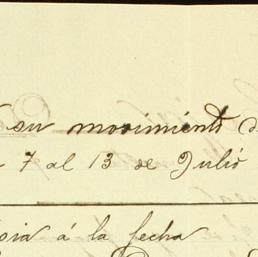 su movimiento
7 al 13 de Julio
á la fecha